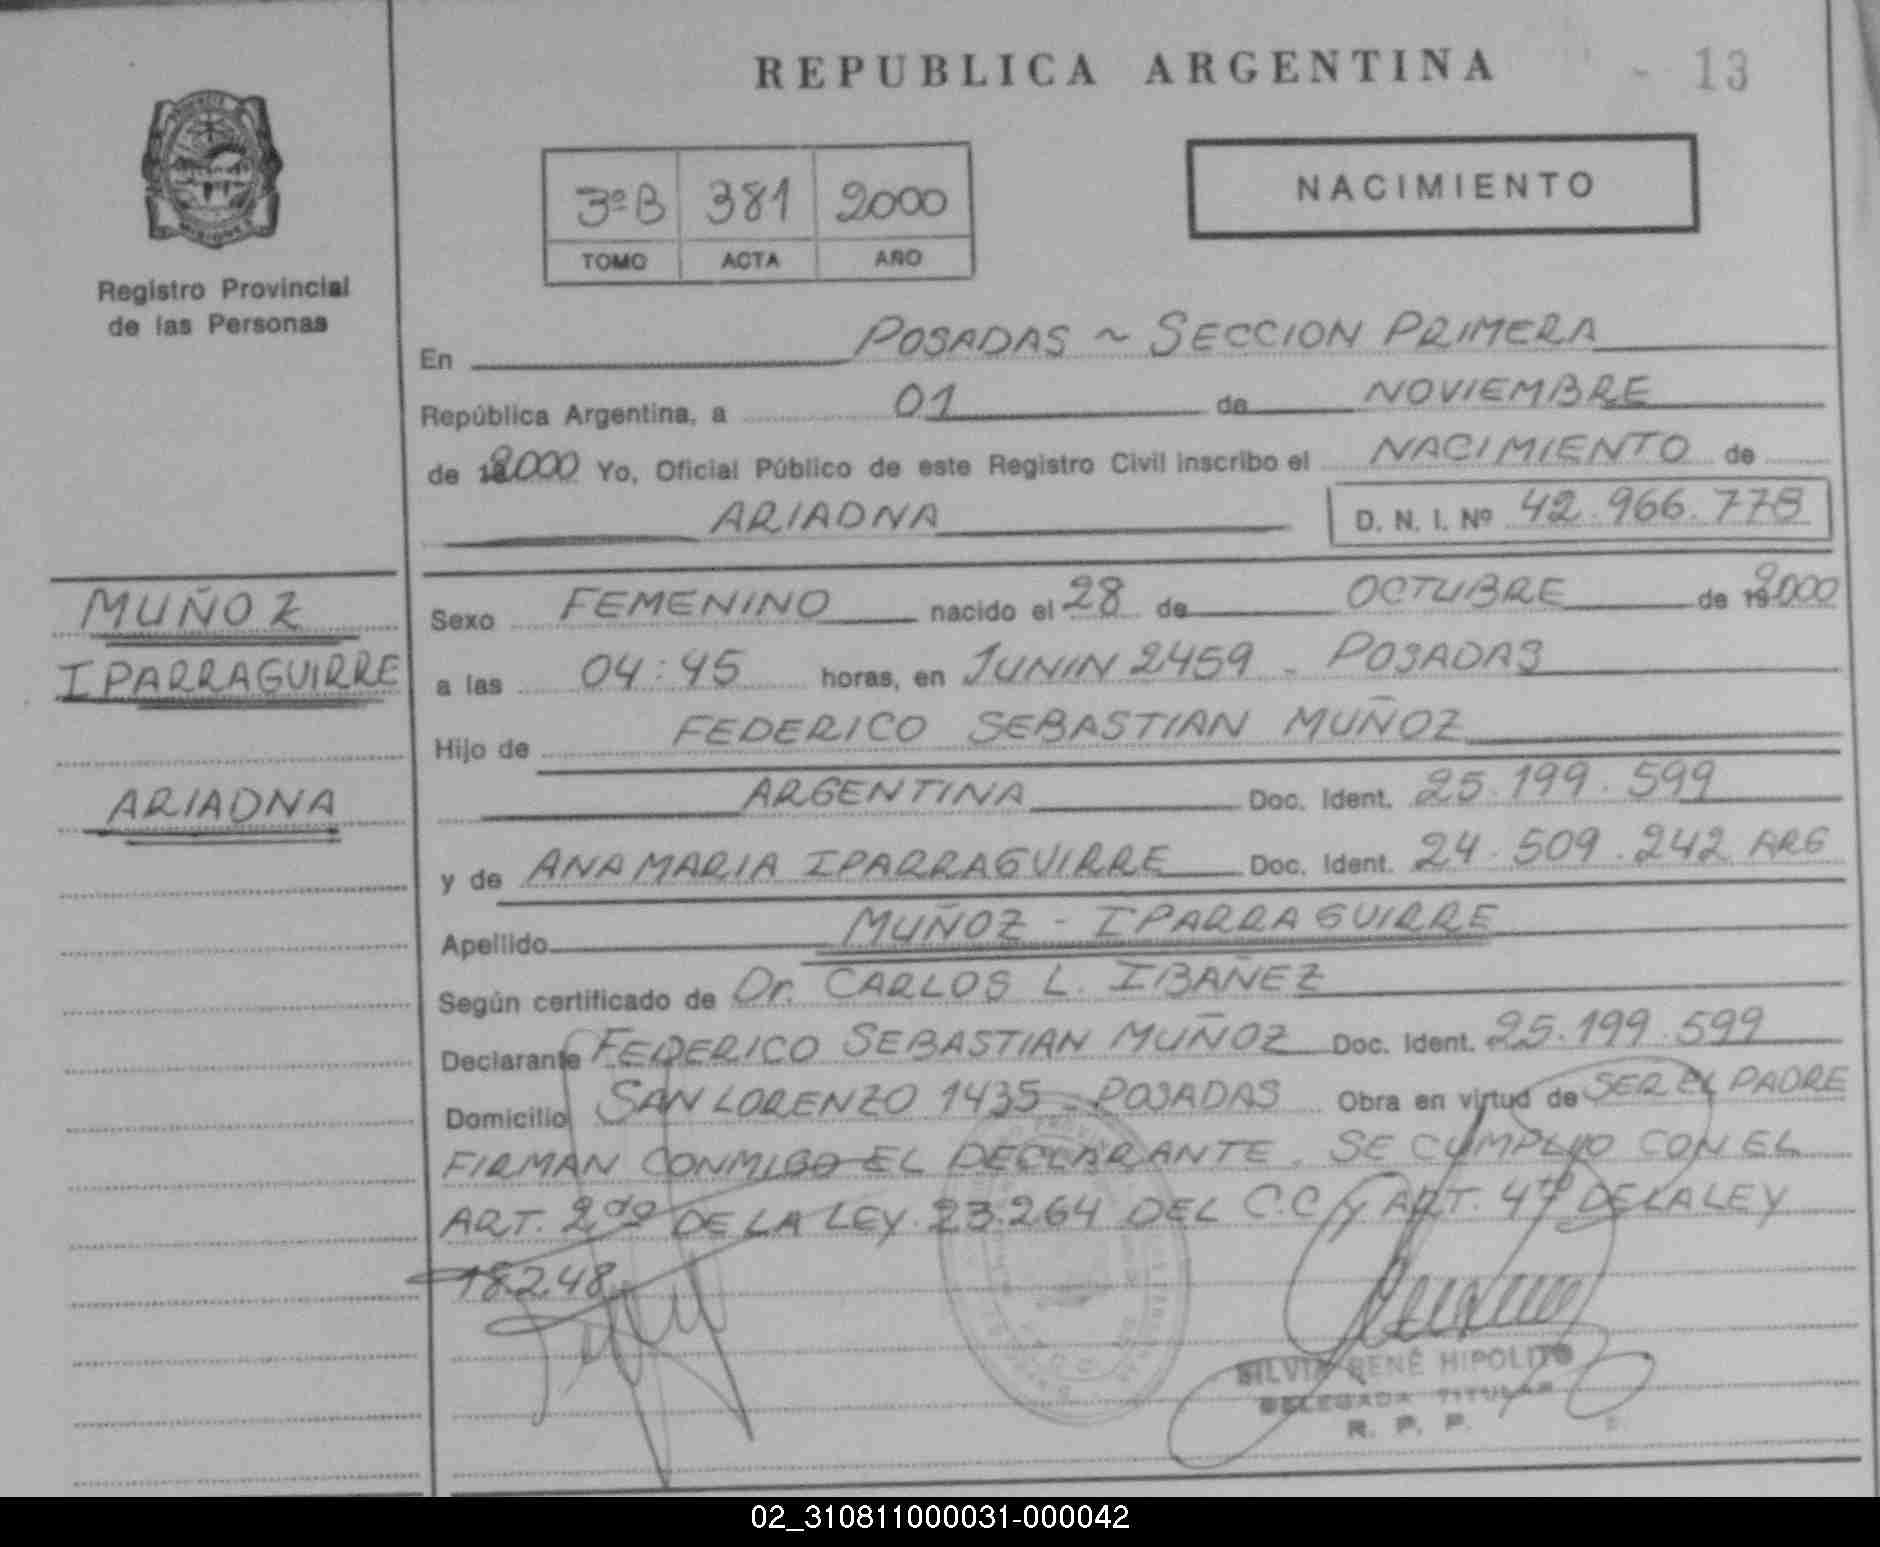 REPUBLICA ARGENTINA - 13
NACIMIENTO
3º B 381 2000
TOMO ACTA AÑO
Registro Provincial
de las Personas
En POSADAS ~ SECCION PRIMERA
República Argentina, a 01 de NOVIEMBRE
de 2000 Yo, Oficial Público de este Registro Civil inscribo el NACIMIENTO de
ARIADNA D. N. I. Nº 42.966.778
MUÑOZ
IPARRAGUIRRE
ARIADNA
Sexo FEMENINO nacido el 28 de OCTUBRE de 2000
a las 04:45 horas, en JUNIN 2459 - POSADAS
Hijo de FEDERICO SEBASTIAN MUÑOZ
ARGENTINA Doc. Ident. 25.199.599
y de ANA MARIA IPARRAGUIRRE Doc. Ident. 24.509.242 ARG
Apellido MUÑOZ - IPARRAGUIRRE
Según certificado de Dr. CARLOS L. IBAÑEZ
Declarante FEDERICO SEBASTIAN MUÑOZ Doc. Ident. 25.199.599
Domicilio SAN LORENZO 1435 - POSADAS Obra en virtud de SER EL PADRE
FIRMAN CONMIGO EL DECLARANTE. SE CUMPLIO CON EL
ART. 2do DE LA LEY 23.264 DEL C.C Y ART. 4to DE LA LEY
18.248
SILVIA RENÉ HIPOLITO
DELEGADA TITULAR
R. P. P.
02_310811000031-000042